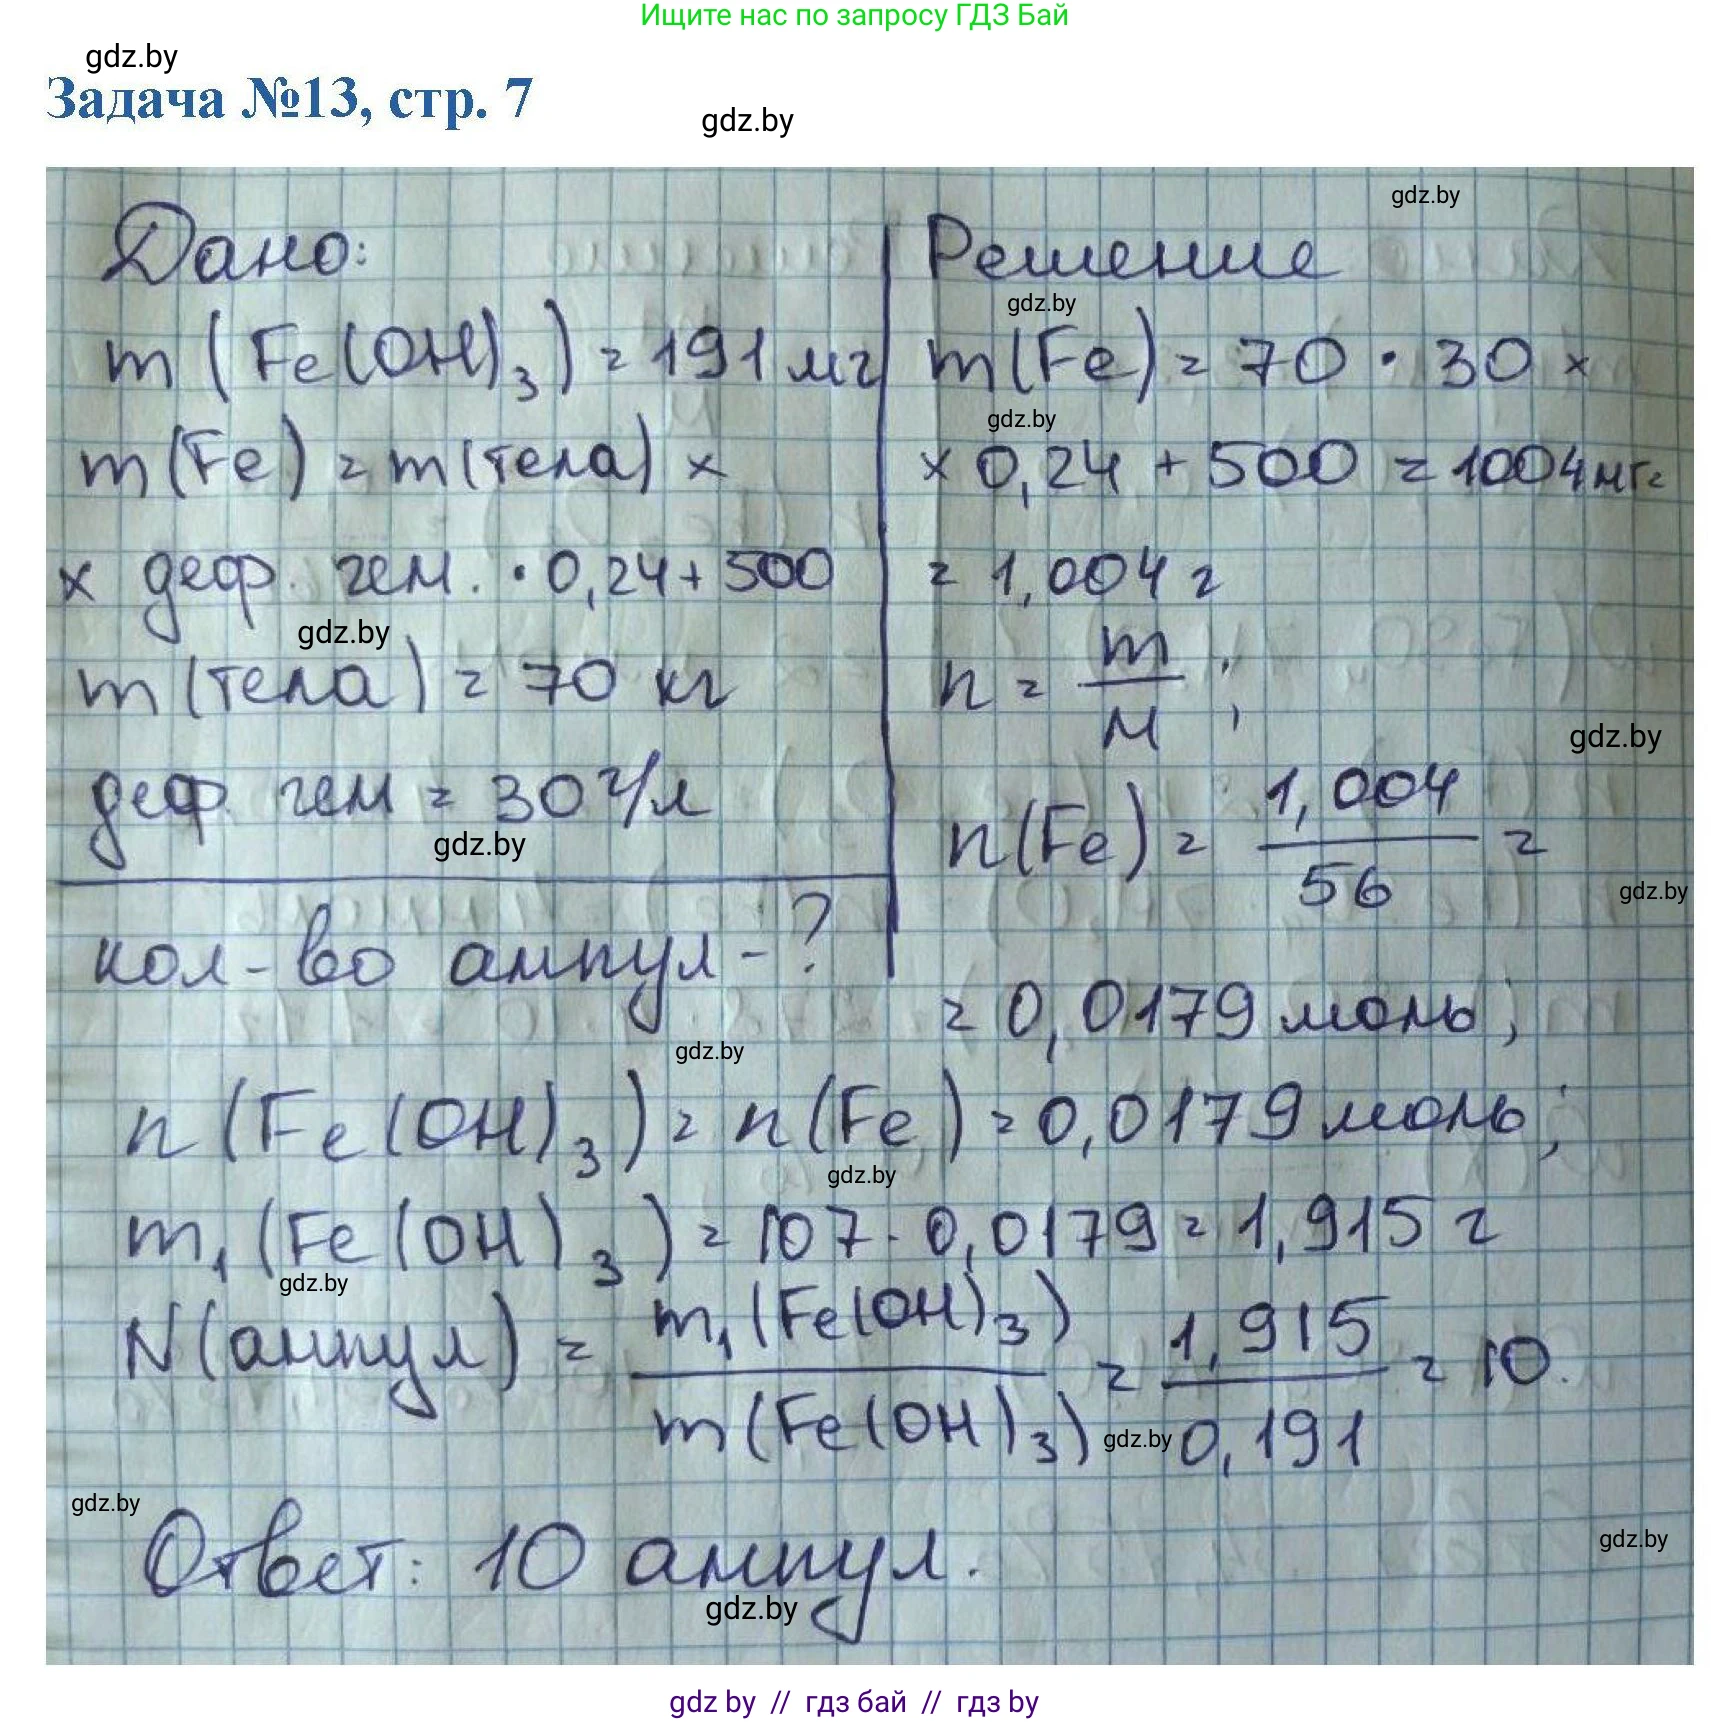 Ищите нас по запросу ГДЗ Бай
gdz.by
Задача №13, стр. 7
gdz.by
gdz.by
Дано:
m (Fe(OH)₃) = 191 мг
m(Fe) = m(тела) ×
× деф. гем. · 0,24 + 500
gdz.by
m(тела) = 70 кг
деф. гем = 30 г/л
gdz.by
кол-во ампул - ?
Решение
gdz.by
m(Fe) = 70 · 30 ×
gdz.by
× 0,24 + 500 = 1004 мг =
= 1,004 г
n = m/M ;
gdz.by
n(Fe) = 1,004/56 =
gdz.by
= 0,0179 моль;
gdz.by
n (Fe(OH)₃) = n(Fe) = 0,0179 моль;
gdz.by
m₁ (Fe(OH)₃) = 107 · 0,0179 = 1,915 г
gdz.by
N(ампул) = m₁(Fe(OH)₃)/m(Fe(OH)₃) = 1,915/0,191 = 10.
gdz.by
gdz.by
Ответ: 10 ампул.
gdz.by
gdz.by
gdz by // гдз бай // гдз by